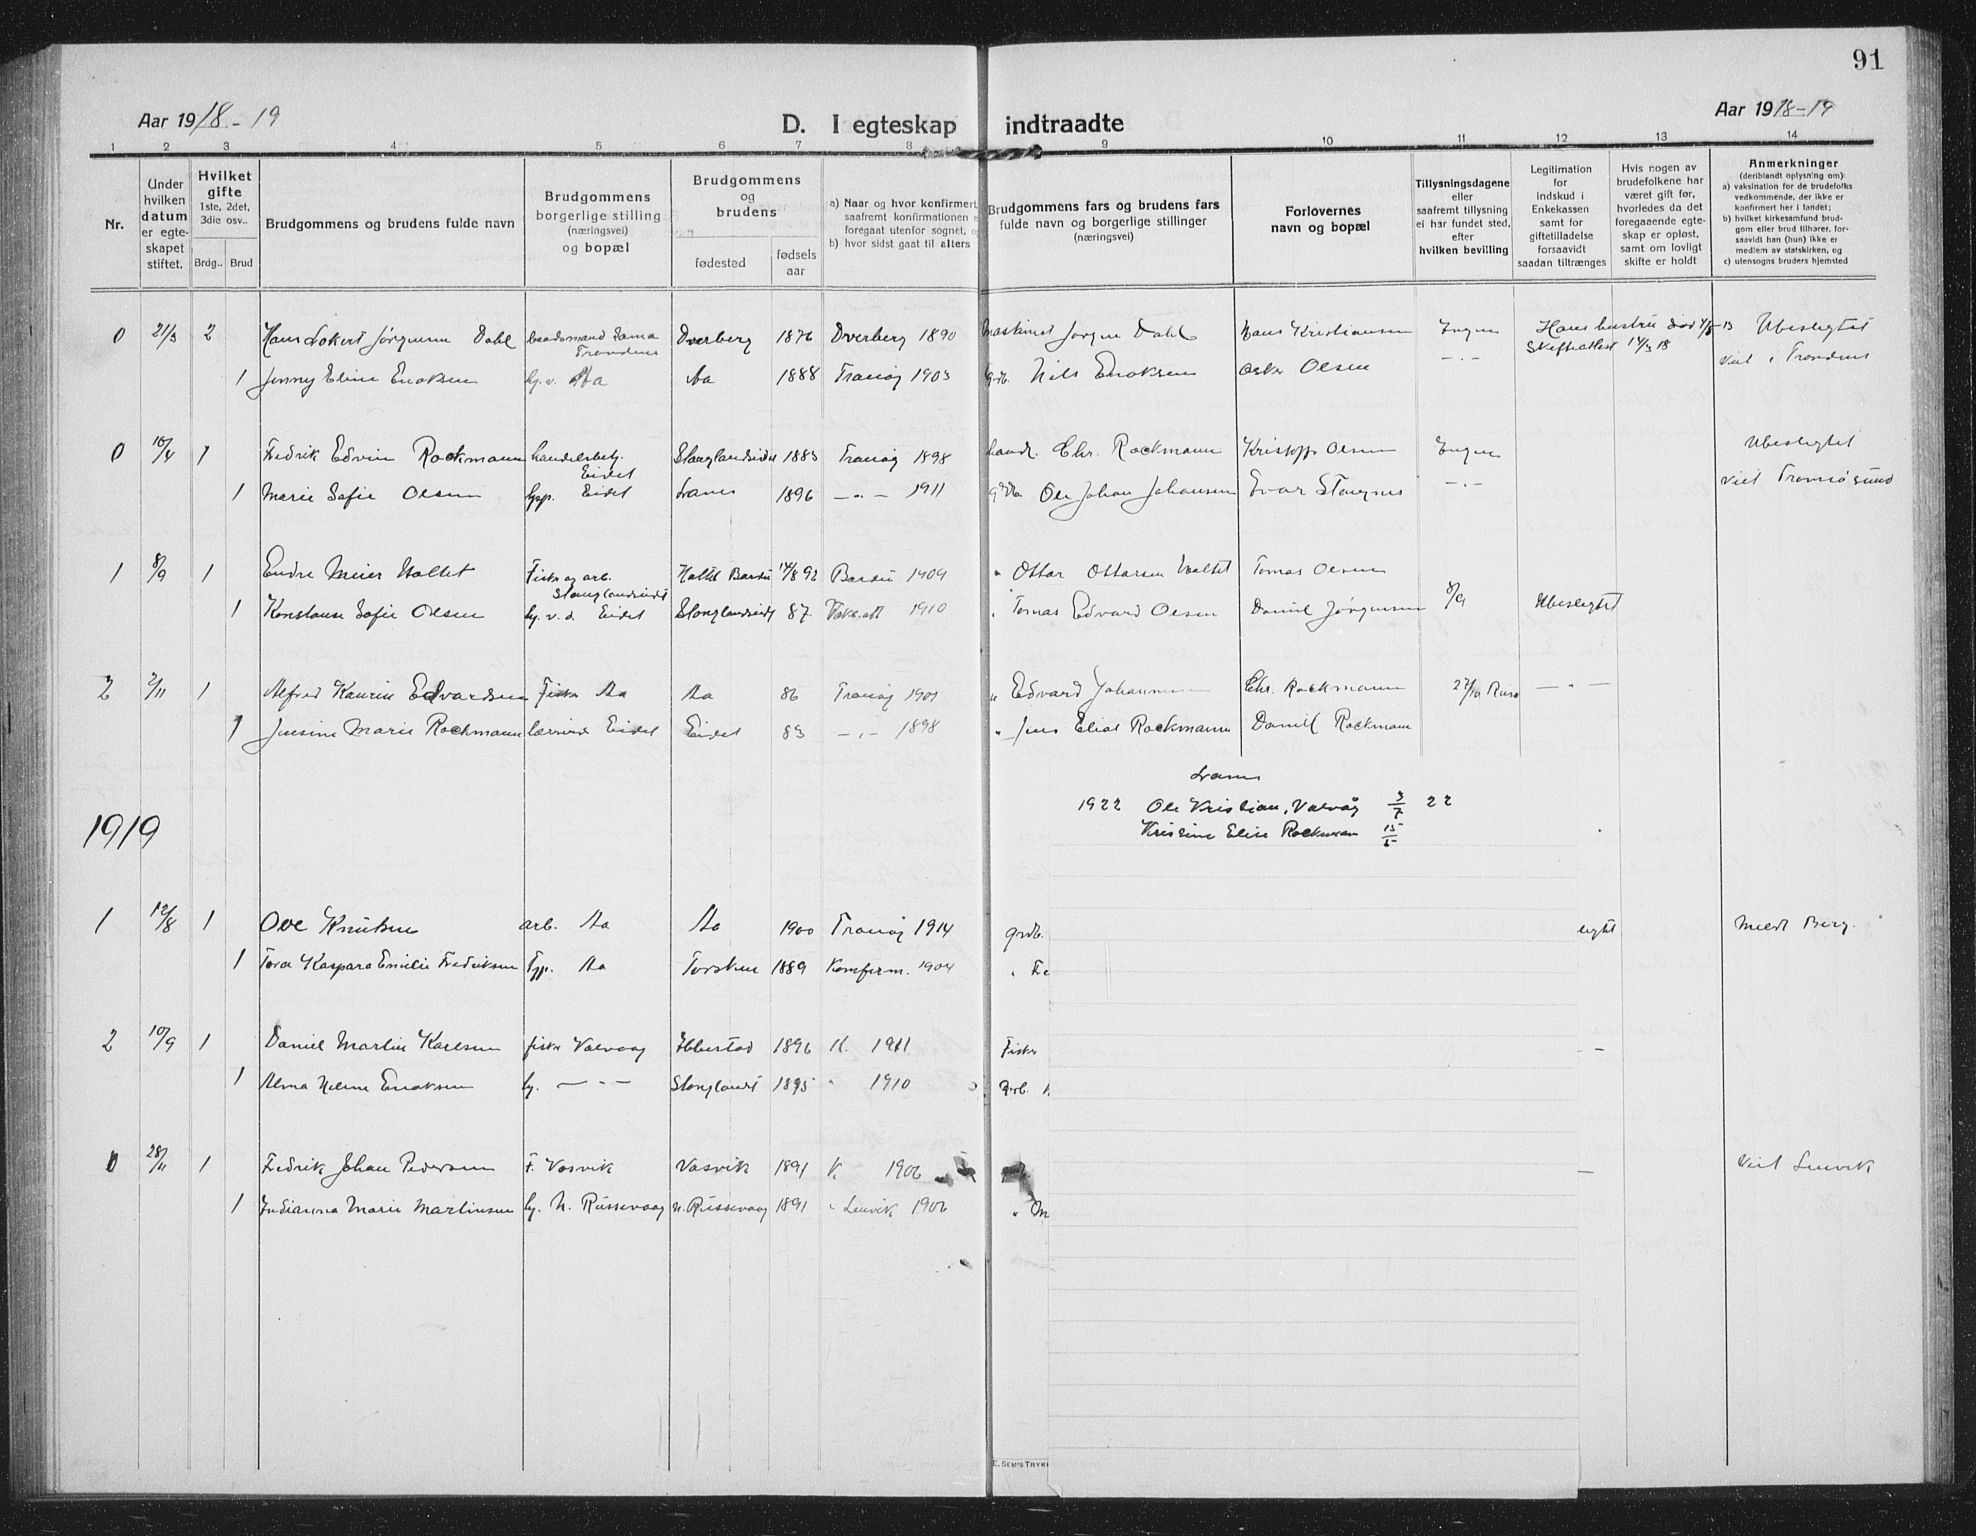 91
Aar 1918-19
D. I egteskap indtraadte
Aar 1918-19
1 2 3 4 5 6 7 8 9 10 11 12 13 14
Nr.
Under hvilken datum er egteskapet stiftet.
Hvilket gifte 1ste, 2det, 3die osv..
Brdg.. Brud
Brudgommens og brudens fulde navn
Brudgommens borgerlige stilling (næringsvei) og bopæl
Brudgommens og brudens
fødested
fødsels aar
a) Naar og hvor konfirmert
saafremt konfirmationen e
foregaat utenfor sognet, o
b) hvor sidst gaat til alters
Brudgommens fars og brudens fars
fulde navn og borgerlige stillinger
(næringsvei)
Forlovernes
navn og bopæl
Tillysningsdagene
eller
saafremt tillysning
ei har fundet sted,
efter
hvilken bevilling
Legitimation
for
Indskud i
Enkekassen
samt for
giftetilladelse
forsaavidt
saadan tiltrænges
Hvis nogen av
brudefolkene har
været gift før,
hvorledes da det
foregaaende egte-
skap er opløst,
samt om lovligt
skifte er holdt
Anmerkninger
(deriblandt oplysning om):
a) vaksination for de brudefolks
vedkommende, der ikke er
konfirmert her i landet;
b) hvilket kirkesamfund brud-
gom eller brud tilhører, for-
saavidt han (hun) ikke er
medlem av statskirken, og
c) utensogns bruders hjemsted
0 21/3 2 Hans Lokert Jørgensen Dahl Dverberg 1876 Dverberg 1890 Maskinist Jørgen Dahl Hans Kristiansen Ingen Hans hustru Ubeslegtet
Trondenes Skifteattest 14/3 18 viet i Trondenes
1 Jenny Eline Enoksen Aa Aa 1888 Tranøy 1903 grdb. Nils Enoksen Oskar Olsen -„-
0 10/4 1 Fredrik Edvin Rockmann handelsbetj. Eidet Stanglandseidet 1883 Tranøy 1898 handl. Chr. Rockmann Kristoffer Olsen Ingen Ubeslegtet
1 Marie Sofie Olsen Eidet Lanes 1896 -„- 1911 Ole Johan Johansen Evar Stangnes -„- viet Tromsøsund
1 8/9 1 Endre Meier Holtet Fisker og arb. Stanglandseidet Holtet Bardu 14/8 92 Bardu 1909 „ Ottar Ottarsen Holtet Tomas Olsen
1 Konstanse Sofie Olsen Eidet Stanglandseidet 87 1910 „ Tomas Edvard Olsen Daniel Jørgensen 8/9 Ubeslegtet
2 2/11 1 Alfred Kaurin Edvardsen Fisker Aa Aa 86 Tranøy 1901 „ Edvard Johannesen Chr. Rockmann 27/10 -„-
1 Jensine Marie Rockmann lærerinde Eidet Eidet 83 -„- 1898 „ Jens Elias Rockmann Daniel Rockmann
Lanes
1922 Ole Kristian, Valvåg 3/7 22
Kristine Elise Rockmann 15/5
1919
1 12/8 1 Ove Knutsen arb. Aa Aa 1900 Tranøy 1914 grdb. egtet Meldt Berg.
1 Tora Kaspara Emilie Fredriksen Tjp. Aa Torsken 1889 Konfirm. 1904 „ Fe
2 10/9 1 Daniel Martin Karlsen fisker Valvaag Ibbestad 1896 K. 1911 Fisker -
1 Alma Helene Enoksen -„- Stanglandet 1895 „ 1910 Grb.
0 28/11 1 Fredrik Johan Pedersen F. Vasvik Vasvik 1891 K. 1906 - Viet Lenvik
1 Indianna Marie Martinsen N. Russevaag N. Russevaag 1891 „ Lenvik 1906 „ M
E. SEM'S TRYKK